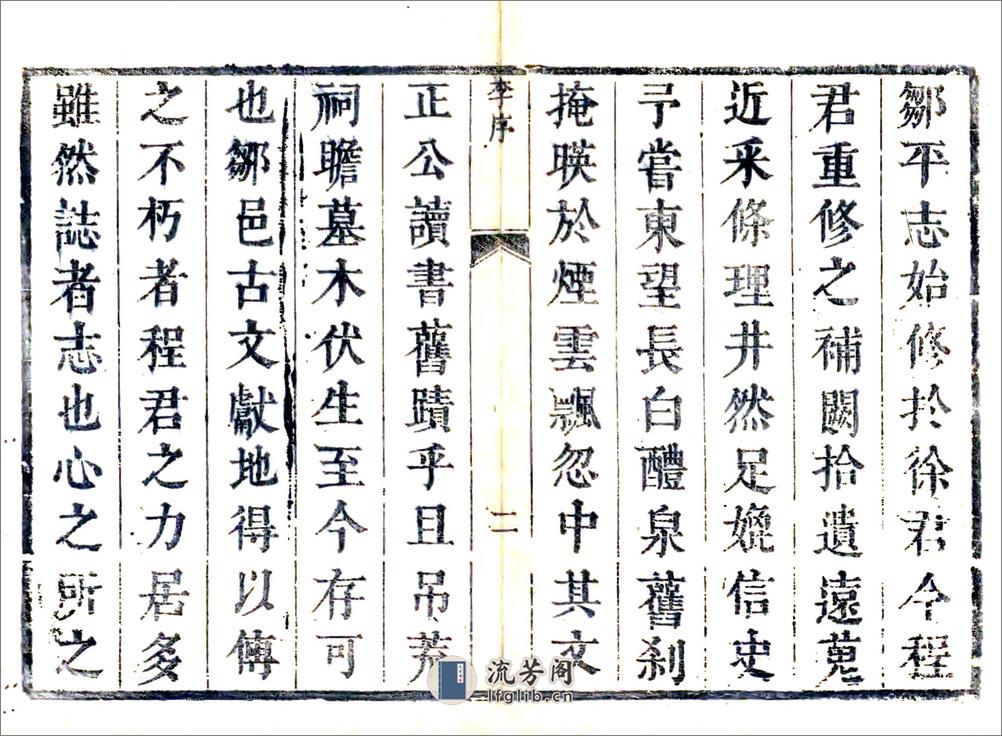 鄒平志始修於徐君今程
君重修之補闕拾遺遠蒐
近采條理井然足媲信史
予嘗東望長白醴泉舊刹
掩暎於煙雲飄忽中其文
李序
二
正公讀書舊蹟乎且吊荒
祠瞻墓木伏生至今存可
也鄒邑古文獻地得以傳
之不朽者程君之力居多
雖然誌者志也心之所之
流芳阁
lfglib.cn